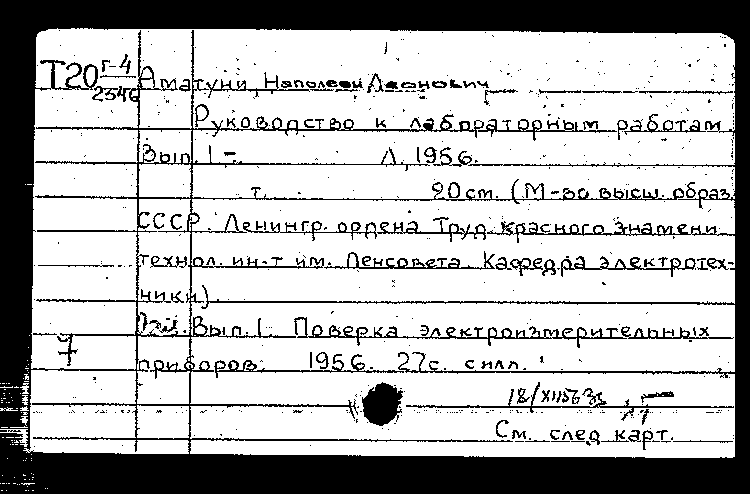 Т20 г-4 Аматуни, Наполеон Леонович
2546
Руководство к лабораторным работам.
Вып. 1-. Л, 1956.
т. 20 см. (М-во высш. образ.
СССР. Ленингр. ордена Труд. Красного Знамени
технол. ин-т им. Ленсовета. Кафедра электротех-
ники).
Вып. 1. Поверка электроизмерительных
приборов. 1956. 27 с. с илл.
7
См. след. карт.